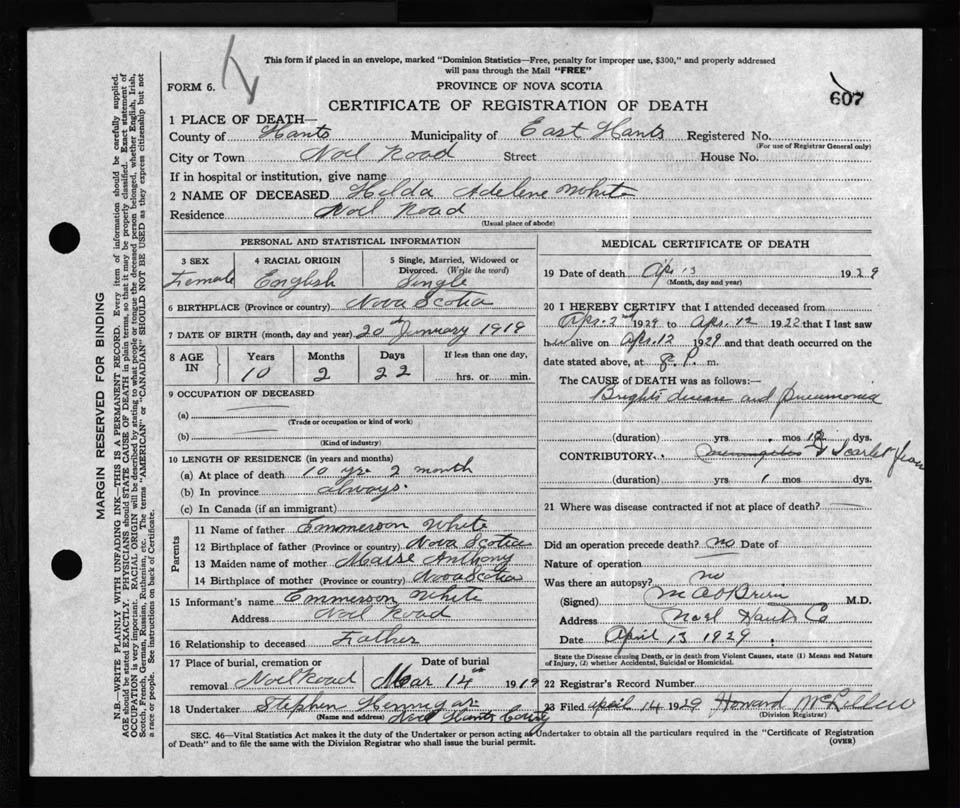 This form if placed in an envelope, marked "Dominion Statistics—Free, penalty for improper use, $300," and properly addressed
will pass through the Mail "FREE"
FORM 6.
PROVINCE OF NOVA SCOTIA
607
CERTIFICATE OF REGISTRATION OF DEATH
1 PLACE OF DEATH—
County of Hants Municipality of East Hants Registered No.
(For use of Registrar General only)
City or Town Noel Road Street House No.
If in hospital or institution, give name
2 NAME OF DECEASED Hilda Adelene White
Residence Noel Road
(Usual place of abode)
PERSONAL AND STATISTICAL INFORMATION
3 SEX 4 RACIAL ORIGIN 5 Single, Married, Widowed or
Divorced. (Write the word)
Female English Single
6 BIRTHPLACE (Province or country) Nova Scotia
7 DATE OF BIRTH (month, day and year) 20th January 1919
8 AGE IN Years Months Days If less than one day,
10 2 22 hrs. or min.
9 OCCUPATION OF DECEASED
(a)
(Trade or occupation or kind of work)
(b)
(Kind of industry)
10 LENGTH OF RESIDENCE (in years and months)
(a) At place of death 10 yrs 2 month
(b) In province always.
(c) In Canada (if an immigrant)
Parents
11 Name of father Emmerson White
12 Birthplace of father (Province or country) Nova Scotia
13 Maiden name of mother Anthony
14 Birthplace of mother (Province or country) Nova Scotia
15 Informant's name Emmerson White
Address Noel Road
16 Relationship to deceased Father
17 Place of burial, cremation or Date of burial
removal Noel Road Mar 14th 1919
18 Undertaker Stephen Hennigar
(Name and address) Noel Hants County
MEDICAL CERTIFICATE OF DEATH
19 Date of death Ap. 13 1929
(Month, day and year)
20 I HEREBY CERTIFY that I attended deceased from
Aps. 2nd 1929 to Aps. 12 1922 that I last saw
her alive on Aps. 12 1929 and that death occurred on the
date stated above, at 8. P. m.
The CAUSE of DEATH was as follows:—
Brights disease and Pneumonia
(duration) yrs mos 12 dys.
CONTRIBUTORY. Scarlet
(duration) yrs 1 mos dys.
21 Where was disease contracted if not at place of death?
Did an operation precede death? no Date of
Nature of operation
Was there an autopsy? no
(Signed) M.D.
Address Noel Hants Co
Date April 13 1929
State the Disease causing Death, or in death from Violent Causes, state (1) Means and Nature
of Injury, (2) whether Accidental, Suicidal or Homicidal.
22 Registrar's Record Number
23 Filed april 14 1929 Howard McLellan
(Division Registrar)
SEC. 46—Vital Statistics Act makes it the duty of the Undertaker or person acting as Undertaker to obtain all the particulars required in the "Certificate of Registration
of Death" and to file the same with the Division Registrar who shall issue the burial permit.
(OVER)
MARGIN RESERVED FOR BINDING
N.B.—WRITE PLAINLY WITH UNFADING INK—THIS IS A PERMANENT RECORD. Every item of information should be carefully supplied.
AGE should be stated EXACTLY. PHYSICIANS should STATE CAUSE OF DEATH in plain terms, so that it may be properly classified. Exact statement of
OCCUPATION is very important. RACIAL ORIGIN will be described by stating to what people or tongue the deceased person belonged, whether English, Irish,
Scotch, French, German, Russian, Ruthenian, etc. The terms "AMERICAN" or "CANADIAN" SHOULD NOT BE USED as they express citizenship but not
a race or people. See instructions on back of Certificate.